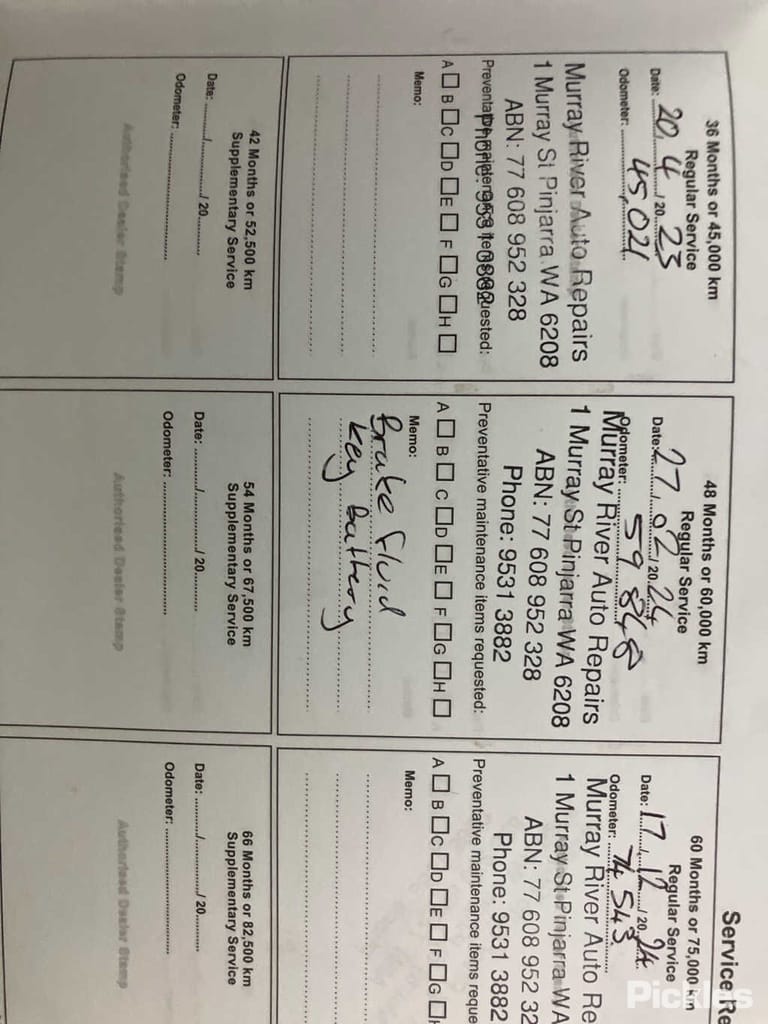 Service Re
36 Months or 45,000 km
Regular Service
Date: 20/4/2023
Odometer: 45021
Murray River Auto Repairs
1 Murray St Pinjarra WA 6208
ABN: 77 608 952 328
Phone: 9531 3882
Preventative maintenance items requested:
A □ B □ C □ D □ E □ F □ G □ H □
Memo:
48 Months or 60,000 km
Regular Service
Date: 27/02/2024
Odometer: 59848
Murray River Auto Repairs
1 Murray St Pinjarra WA 6208
ABN: 77 608 952 328
Phone: 9531 3882
Preventative maintenance items requested:
A □ B □ C □ D □ E □ F □ G □ H □
Memo:
Brake fluid
key battery
60 Months or 75,000 km
Regular Service
Date: 17/12/2024
Odometer: 74543
Murray River Auto Re
1 Murray St Pinjarra WA
ABN: 77 608 952 32
Phone: 9531 3882
Preventative maintenance items reque
A □ B □ C □ D □ E □ F □ G □ H
Memo:
42 Months or 52,500 km
Supplementary Service
Date: ......../......../ 20........
Odometer: ........................
Authorised Dealer Stamp
54 Months or 67,500 km
Supplementary Service
Date: ......../......../ 20........
Odometer: ........................
Authorised Dealer Stamp
66 Months or 82,500 km
Supplementary Service
Date: ......../......../ 20........
Odometer: ........................
Authorised Dealer Stamp
Pickles